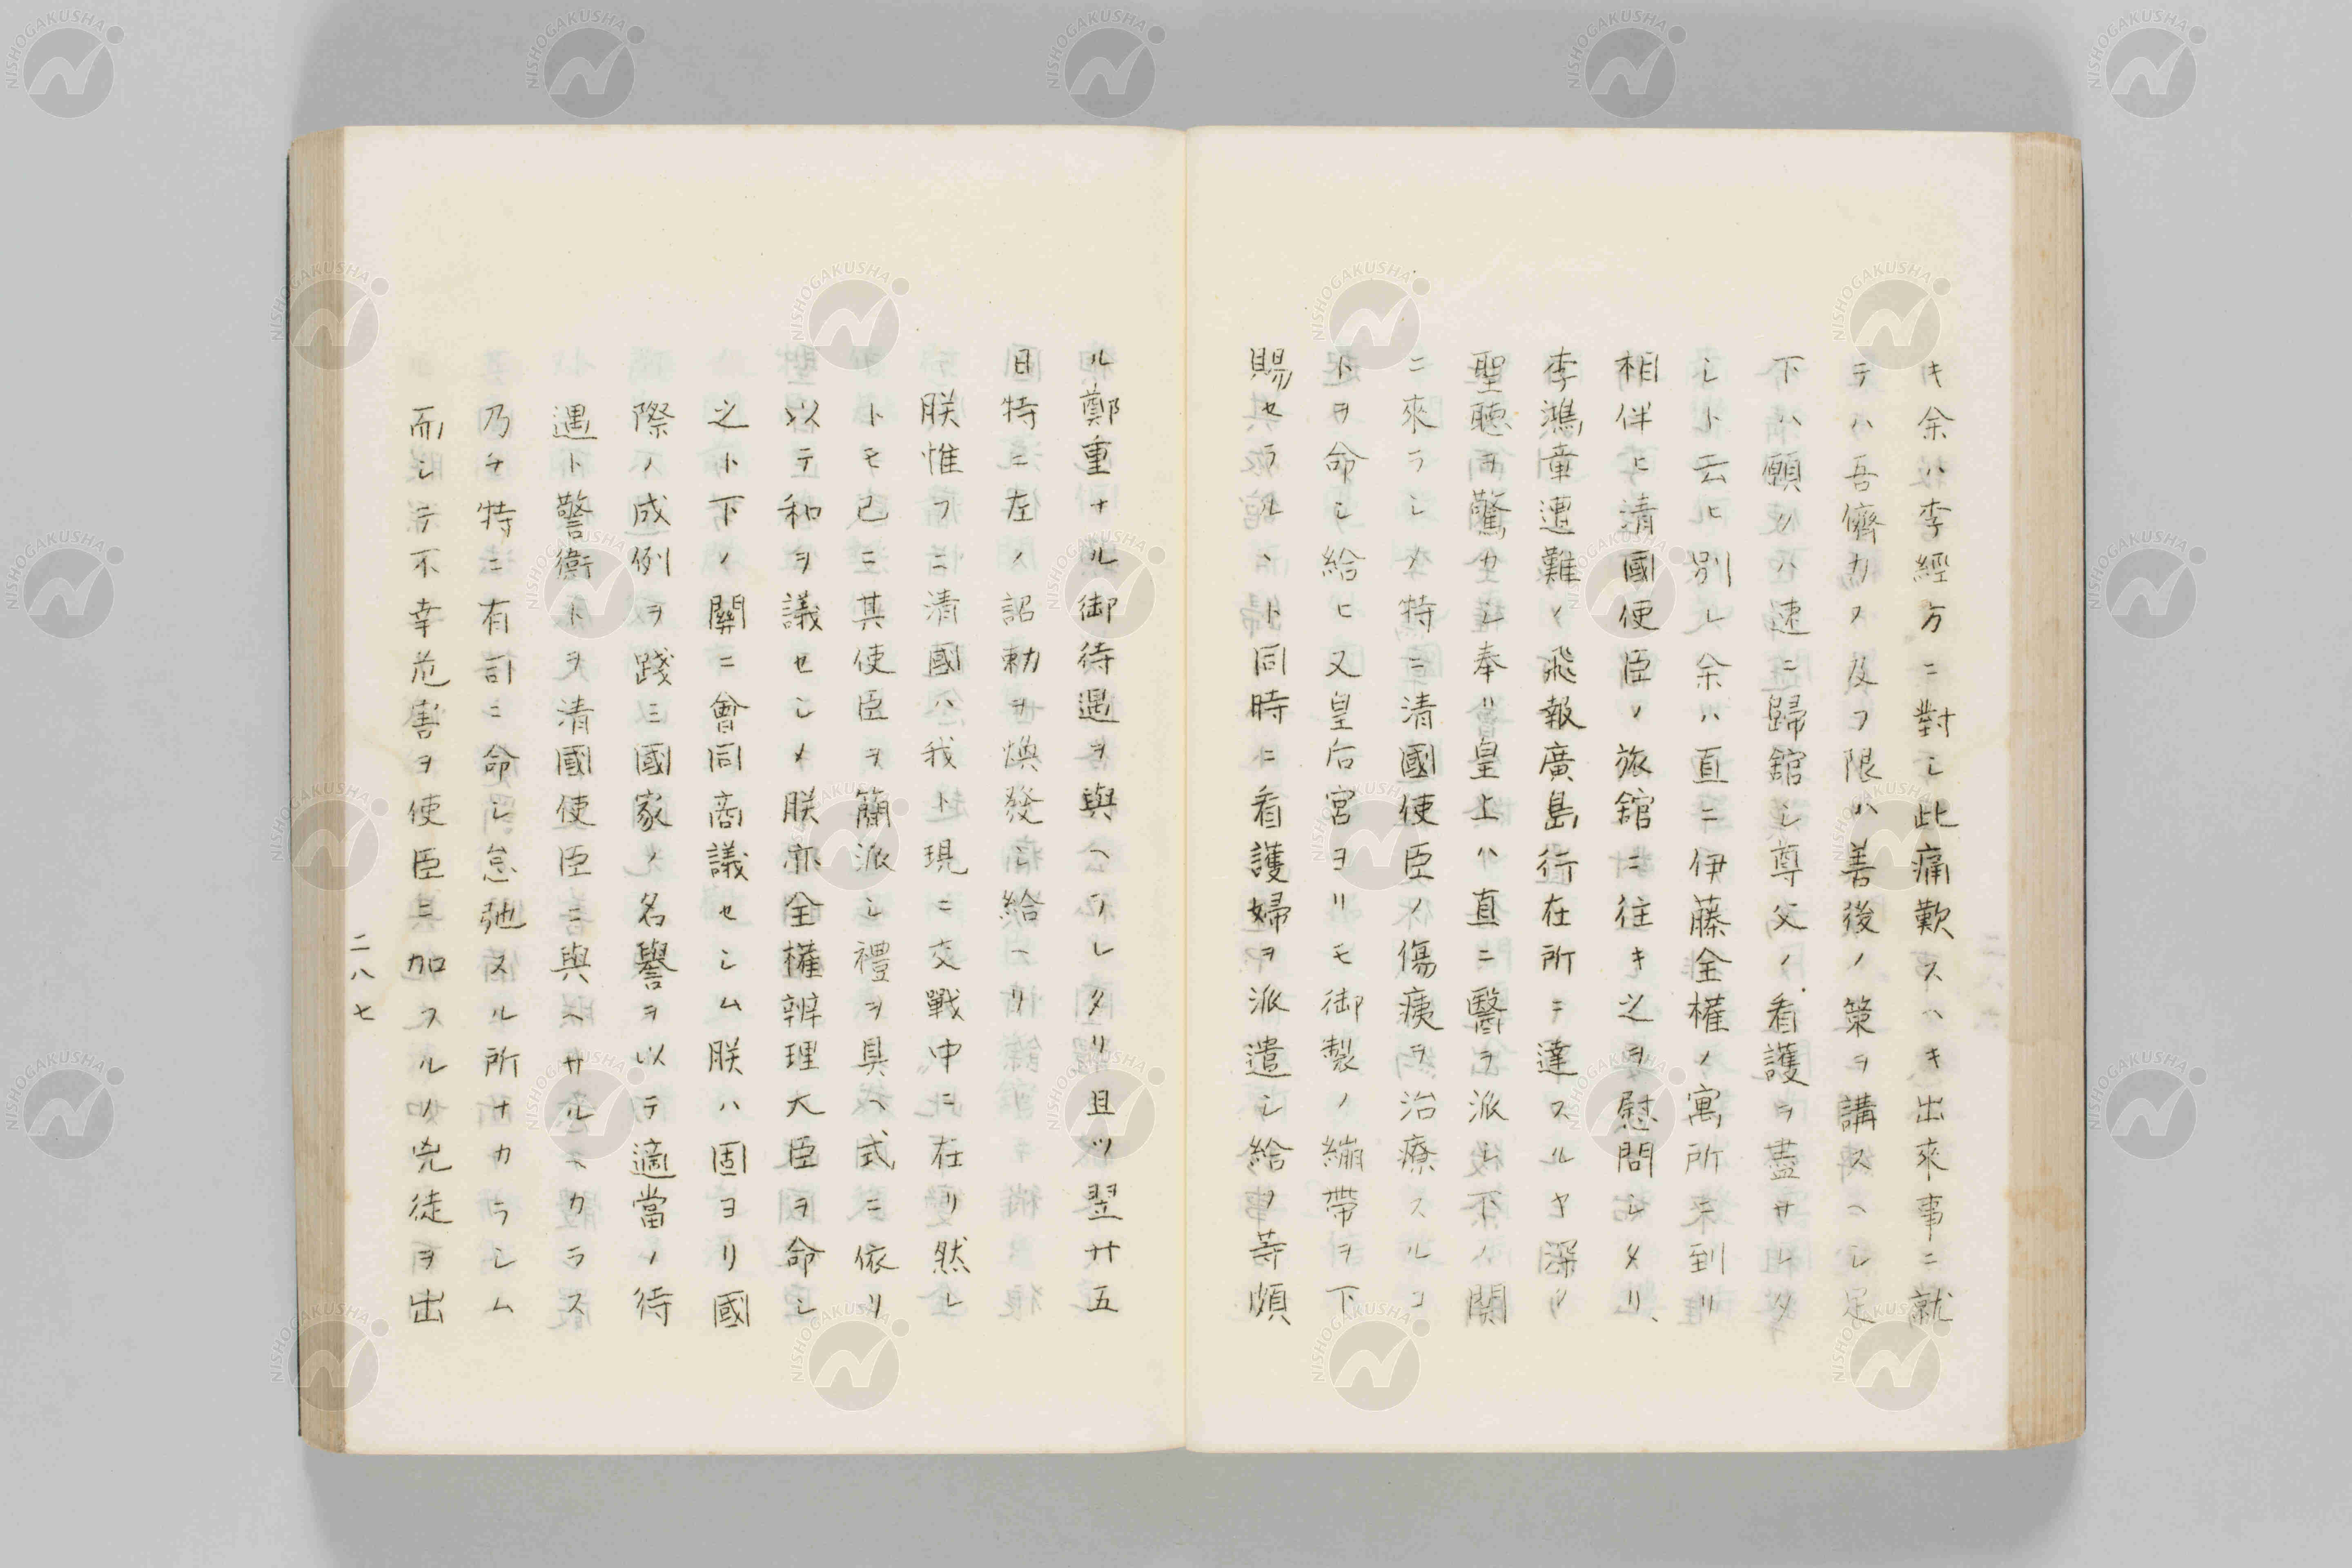 キ余ハ李經方ニ對シ此痛歎スヘキ出來事ニ就
テハ吾儕力ノ及フ限ハ善後ノ策ヲ講スヘシ足
下ハ願クハ速ニ歸舘シ尊父ノ看護ヲ盡サレタ
シト云ヒ別レ余ハ直ニ伊藤全權ノ寓所ニ到リ
相伴ヒ清國使臣ノ旅舘ニ往キ之ヲ慰問シタリ、
李鴻章遭難ノ飛報廣島行在所ニ達スルヤ深ク
聖聴ヲ驚カシ奉リ皇上ハ直ニ醫ヲ派シ下ノ關
ニ來ラシメ特ニ清國使臣ノ傷痍ヲ治療スルコ
トヲ命シ給ヒ又皇后宮ヨリモ御製ノ繃帯ヲ下
賜セラルヽト同時ニ看護婦ヲ派遣シ給フ等頗
ル鄭重ナル御待遇ヲ與ヘラレタリ且ツ翌廿五
日特ニ左ノ詔勅ヲ煥發シ給ヘリ
朕惟フニ清國ハ我ト現ニ交戰中ニ在リ然レ
トモ已ニ其使臣ヲ簡派シ禮ヲ具ヘ式ニ依リ
以テ和ヲ議セシメ朕亦全權辨理大臣ヲ命シ
之ト下ノ關ニ會同商議セシム朕ハ固ヨリ國
際ノ成例ヲ踐ミ國家ノ名譽ヲ以テ適當ノ待
遇ト警衛トヲ清國使臣ニ與ヘサルヘカラス
乃チ特ニ有司ニ命シ怠弛スル所ナカラシム
而シテ不幸危害ヲ使臣ニ加フルノ兇徒ヲ出
二八七